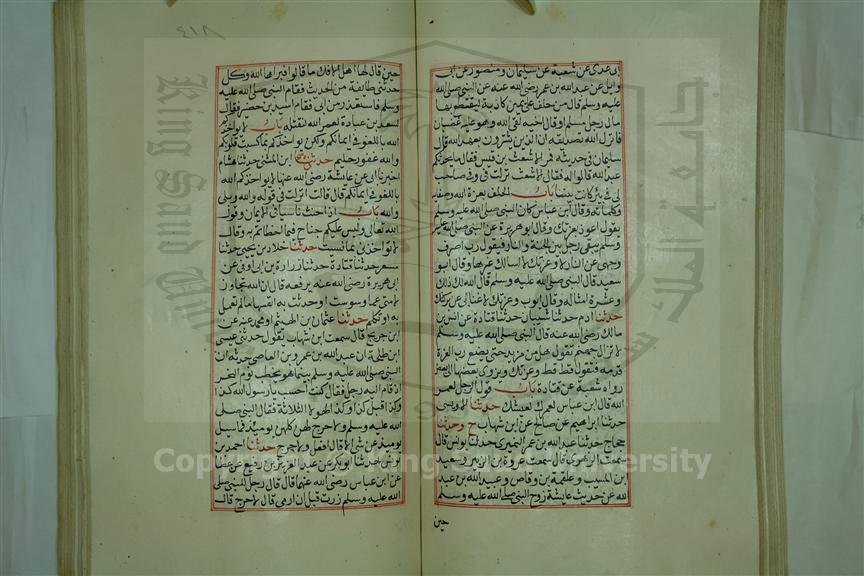 ابى عدى عن شعبة عن سليمان ومنصور عن ابى
وايل عن عبد الله بن عمر رضى الله عنه عن النبى صلى الله
عليه وسلم قال من حلف على يمين كاذبة ليقتطع بها
مال رجل مسلم او قال اخيه لقى الله وهو عليه غضبان
فانزل الله تصديقه ان الذين يشترون بعهد الله قال
سليمان فى حديثه فمر الاشعث بن قيس فقال ما يحدثكم
عبد الله قالوا له فقال الاشعث نزلت فى وفى صاحب
لى فى بئر كانت بيننا باب الحلف بعزة الله وصفاته
وكلماته وقال ابن عباس كان النبى صلى الله عليه وسلم
يقول اعوذ بعزتك وقال ابو هريرة عن النبى صلى الله عليه
وسلم يبقى رجل بين الجنة والنار فيقول رب اصرف
وجهى عن النار لا وعزتك لا اسالك غيرها وقال ابو
سعيد قال النبى صلى الله عليه وسلم قال الله لك ذلك
وعشرة امثاله وقال ايوب وعزتك لا غنى لى عن بركتك
حدثنا ادم حدثنا شيبان حدثنا قتادة عن انس بن
مالك رضى الله عنه قال النبى صلى الله عليه وسلم
لا تزال جهنم تقول هل من مزيد حتى يضع رب العزة
قدمه فتقول قط قط وعزتك ويزوى بعضها الى بعض
رواه شعبة عن قتادة باب قول الرجل لعمر
الله قال ابن عباس لعمرك لعيشك حدثنا الاويسى
حدثنا ابراهيم عن صالح عن ابن شهاب ح وحدثنا
حجاج حدثنا عبد الله بن عمر النميرى حدثنا يونس قال
سمعت الزهرى قال سمعت عروة بن الزبير وسعيد
ابن المسيب وعلقمة بن وقاص وعبيد الله بن عبد
الله عن حديث عايشة زوج النبى صلى الله عليه وسلم
حين
٤١٨
حين قال لها اهل الافك ما قالوا فبراها الله وكل
حدثنى طايفة من الحديث فقام النبى صلى الله عليه
وسلم فاستعذر من ابى فقام اسيد بن حضير فقال
لسعد بن عبادة لعمر الله لنقتلنه باب لا يواخذكم
الله باللغو فى ايمانكم ولكن يواخذكم بما كسبت قلوبكم
والله غفور حليم حدثنى ابن المثنى حدثنا هشام
اخبرنا ابى عن عايشة رضى الله عنها لا يواخذكم الله
باللغو فى ايمانكم قال قالت انزلت فى قوله لا والله وبلى
والله باب اذا حنث ناسيا فى الايمان وقول
الله تعالى وليس عليكم جناح فيما اخطاتم به وقال
لا تواخذنى بما نسيت حدثنا خلاد بن يحيى حدثنا
مسعر حدثنا قتادة حدثنا زرارة بن ابى اوفى عن
ابى هريرة رضى الله عنه يرفعه قال ان الله تجاوز
لامتى عما وسوست او حدثت به انفسها ما لم تعمل
به او تكلم حدثنا عثمان بن الهيثم او محمد عنه عن
ابن جريج قال سمعت ابن شهاب يقول حدثنى عيسى
ابن طلحة ان عبد الله بن عمرو بن العاصى حدثه ان
النبى صلى الله عليه وسلم بينما هو يخطب يوم النحر
اذ قام اليه رجل فقال كنت احسب يا رسول الله كذا
وكذا قبل كذا وكذا لهولا الثلاثة فقال النبى صلى
الله عليه وسلم ولا حرج لهن كلهن يومئذ فما سيل
يومئذ عن شى الا قال افعل ولا حرج حدثنا احمد بن
يونس حدثنا ابو بكر عن عبد العزيز بن رفيع عن عطا
عن ابن عباس رضى الله عنهما قال قال رجل للنبى صلى
الله عليه وسلم زرت قبل ان ارمى قال لا حرج قال
جامعة الملك سعود
King Saud University
Copyright © King Saud University